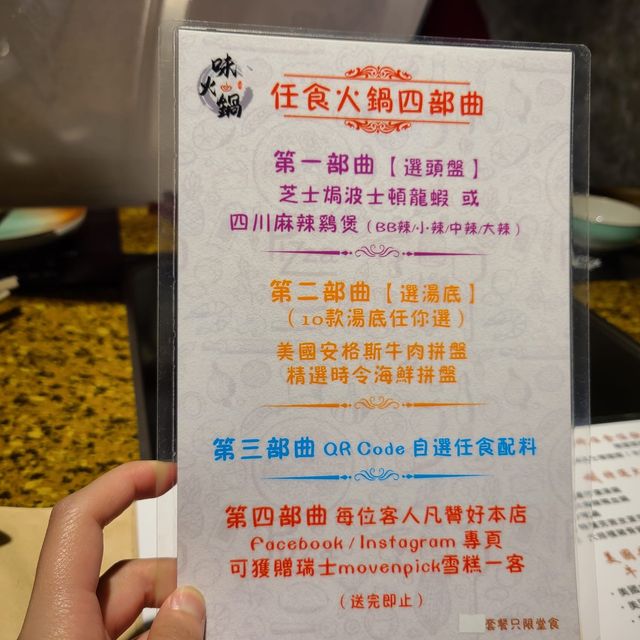 味火鍋
任食火鍋四部曲
第一部曲【選頭盤】
芝士焗波士頓龍蝦 或
四川麻辣鷄煲（BB辣/小辣/中辣/大辣）
第二部曲【選湯底】
（10款湯底任你選）
美國安格斯牛肉拼盤
精選時令海鮮拼盤
第三部曲 QR Code 自選任食配料
第四部曲 每位客人凡贊好本店
Facebook / Instagram 專頁
可獲贈瑞士movenpick雪糕一客
（送完即止）
套餐只限堂食